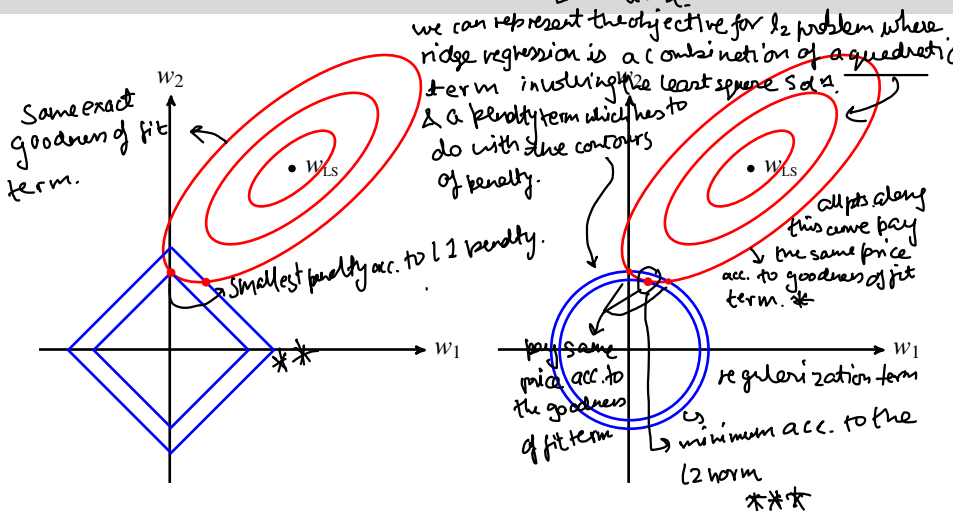 we can represent the objective for l2 problem where
ridge regression is a combination of a quadratic
term involving the least square soln.
& a penalty term which has to
do with the contours
of penalty.
w2
Same exact
goodness of fit
term.
wLS
smallest penalty acc. to l1 penalty.
w1
**
w2
wLS
all pts along
this curve pay
the same price
acc. to goodness of fit
term. *
w1
pay same
price acc. to
the goodness
of fit term
regularization term
minimum acc. to the
l2 norm
***